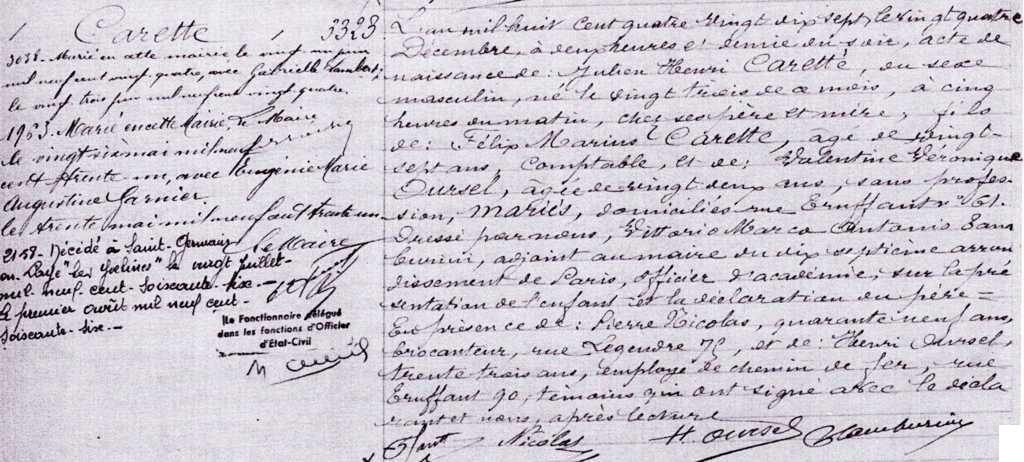 Carette
3323
3038. Marié en cette mairie, le vingt un juin
mil neuf cent vingt quatre, avec Gabrielle Lambert,
le vingt trois juin mil neuf cent vingt quatre.
1963. Marié en cette Mairie, le
le vingt six mai mil neuf
cent trente un, avec Eugénie Marie
Augustine Garnier.
le trente mai mil neuf cent trente un
Le Maire
2158. Décédé à Saint-Germain
en Laye "les" le vingt juillet
mil neuf cent soixante six.-
Le premier août mil neuf cent
soixante-six.-
Le Fonctionnaire délégué
dans les fonctions d'Officier
d'Etat-Civil
L'an mil huit cent quatre vingt dix sept, le vingt quatre
Décembre, à deux heures et demie du soir, acte de
naissance de: Julien Henri Carette, du sexe
masculin, né le vingt trois de ce mois, à cinq
heures du matin, chez ses père et mère; fils
de: Félix Marius Carette, agé de vingt-
sept ans, comptable, et de: Valentine Véronique
Oursel, agée de vingt deux ans, sans profes-
sion, mariés, domiciliés rue Truffaut n° 61.
Dressé par nous, Vittorio Marco Antonio
adjoint au maire du dix septième arron
dissement de Paris, officier d'académie; sur la pré
sentation de l'enfant et la déclaration du père =
En présence de: Pierre Nicolas, quarante neuf ans,
brocanteur, rue Legendre 75, et de: Henri Oursel,
trente trois ans, employé de chemin de fer, rue
Truffaut 90, témoins qui ont signé avec le décla
rant et nous, après lecture
Nicolas H. Oursel